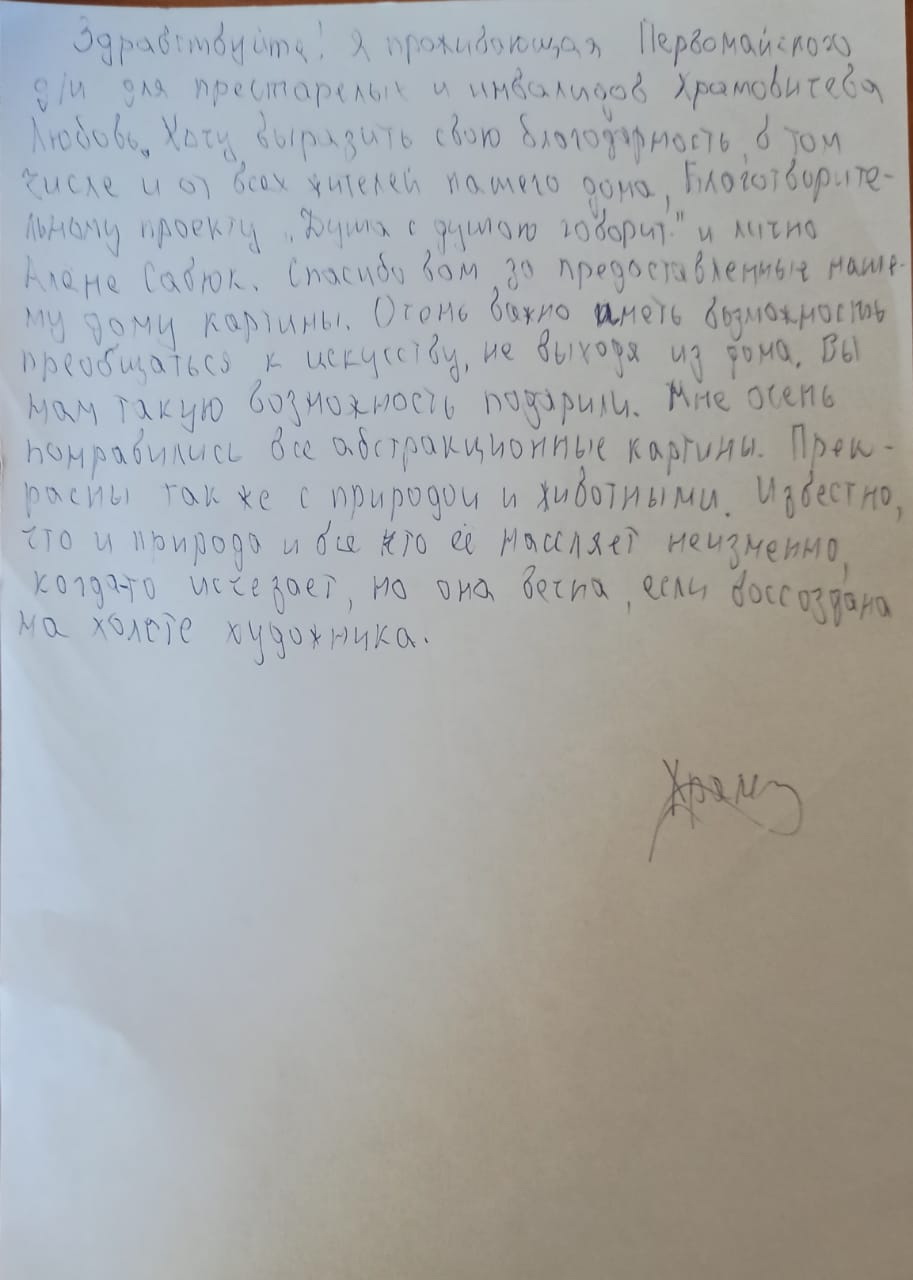 Здравствуйте! Я проживающая Первомайского
д/и для престарелых и инвалидов Храмовичева
Любовь. Хочу выразить свою благодарность, в том
числе и от всех жителей нашего дома, Благотворите-
льному проекту "Душа с душою говорит" и лично
Алене Савюк. Спасибо вам за предоставленные наше-
му дому картины. Очень важно иметь возможность
преобщаться к искусству, не выходя из дома. Вы
нам такую возможность подарили. Мне очень
понравились все абстракционные картины. Прек-
расны так же с природой и животными. Известно,
что и природа и все кто её населяет неизменно,
когда-то исчезает, но она вечна, если воссоздана
на холсте художника.